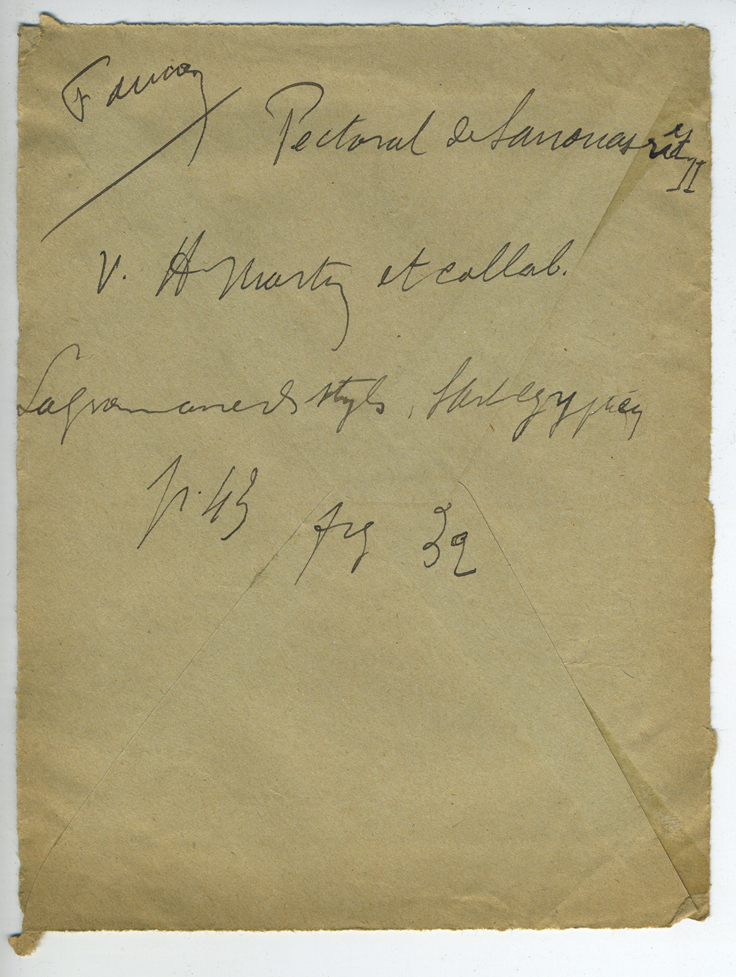 Faucon
Pectoral de Sanouasrit
es
II
V. H Martin et collab.
La grammaire des styles, L'art égyptien
p. 43 fig 32